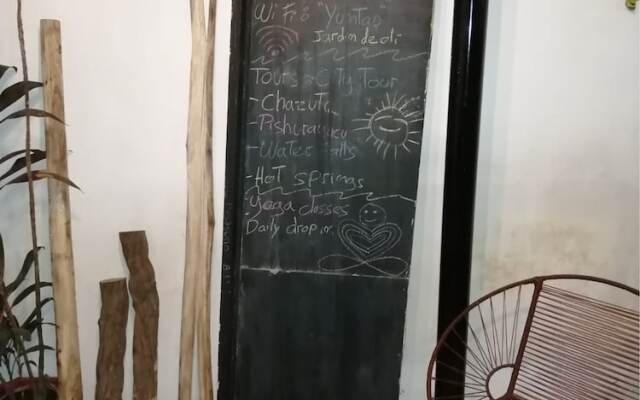 Wifi "Yuntao"
Jardin de oli
Tours - City Tour
- Chazuta
- Pishurayacu
- Water falls
- Hot springs
Yoga classes
Daily drop in